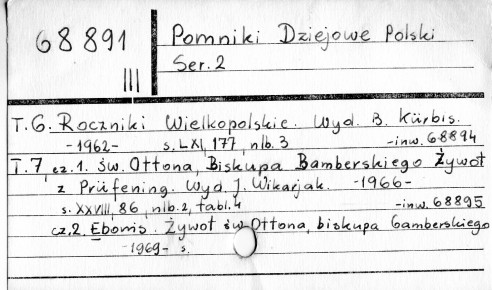 68 891
III
Pomniki Dziejowe Polski
Ser. 2
T. 6. Roczniki Wielkopolskie. Wyd. B. Kürbis.
-1962- s. LXI, 177, nlb. 3 -inw. 68894
T. 7, cz. 1. św. Ottona, Biskupa Bamberskiego Żywot
z Prüfening. Wyd. J. Wikarjak. -1966-
s. XXVIII, 86, nlb. 2, tabl. 4 -inw. 68895
cz. 2. Ebonis. Żywot św Ottona, biskupa bamberskiego
-1969- s.